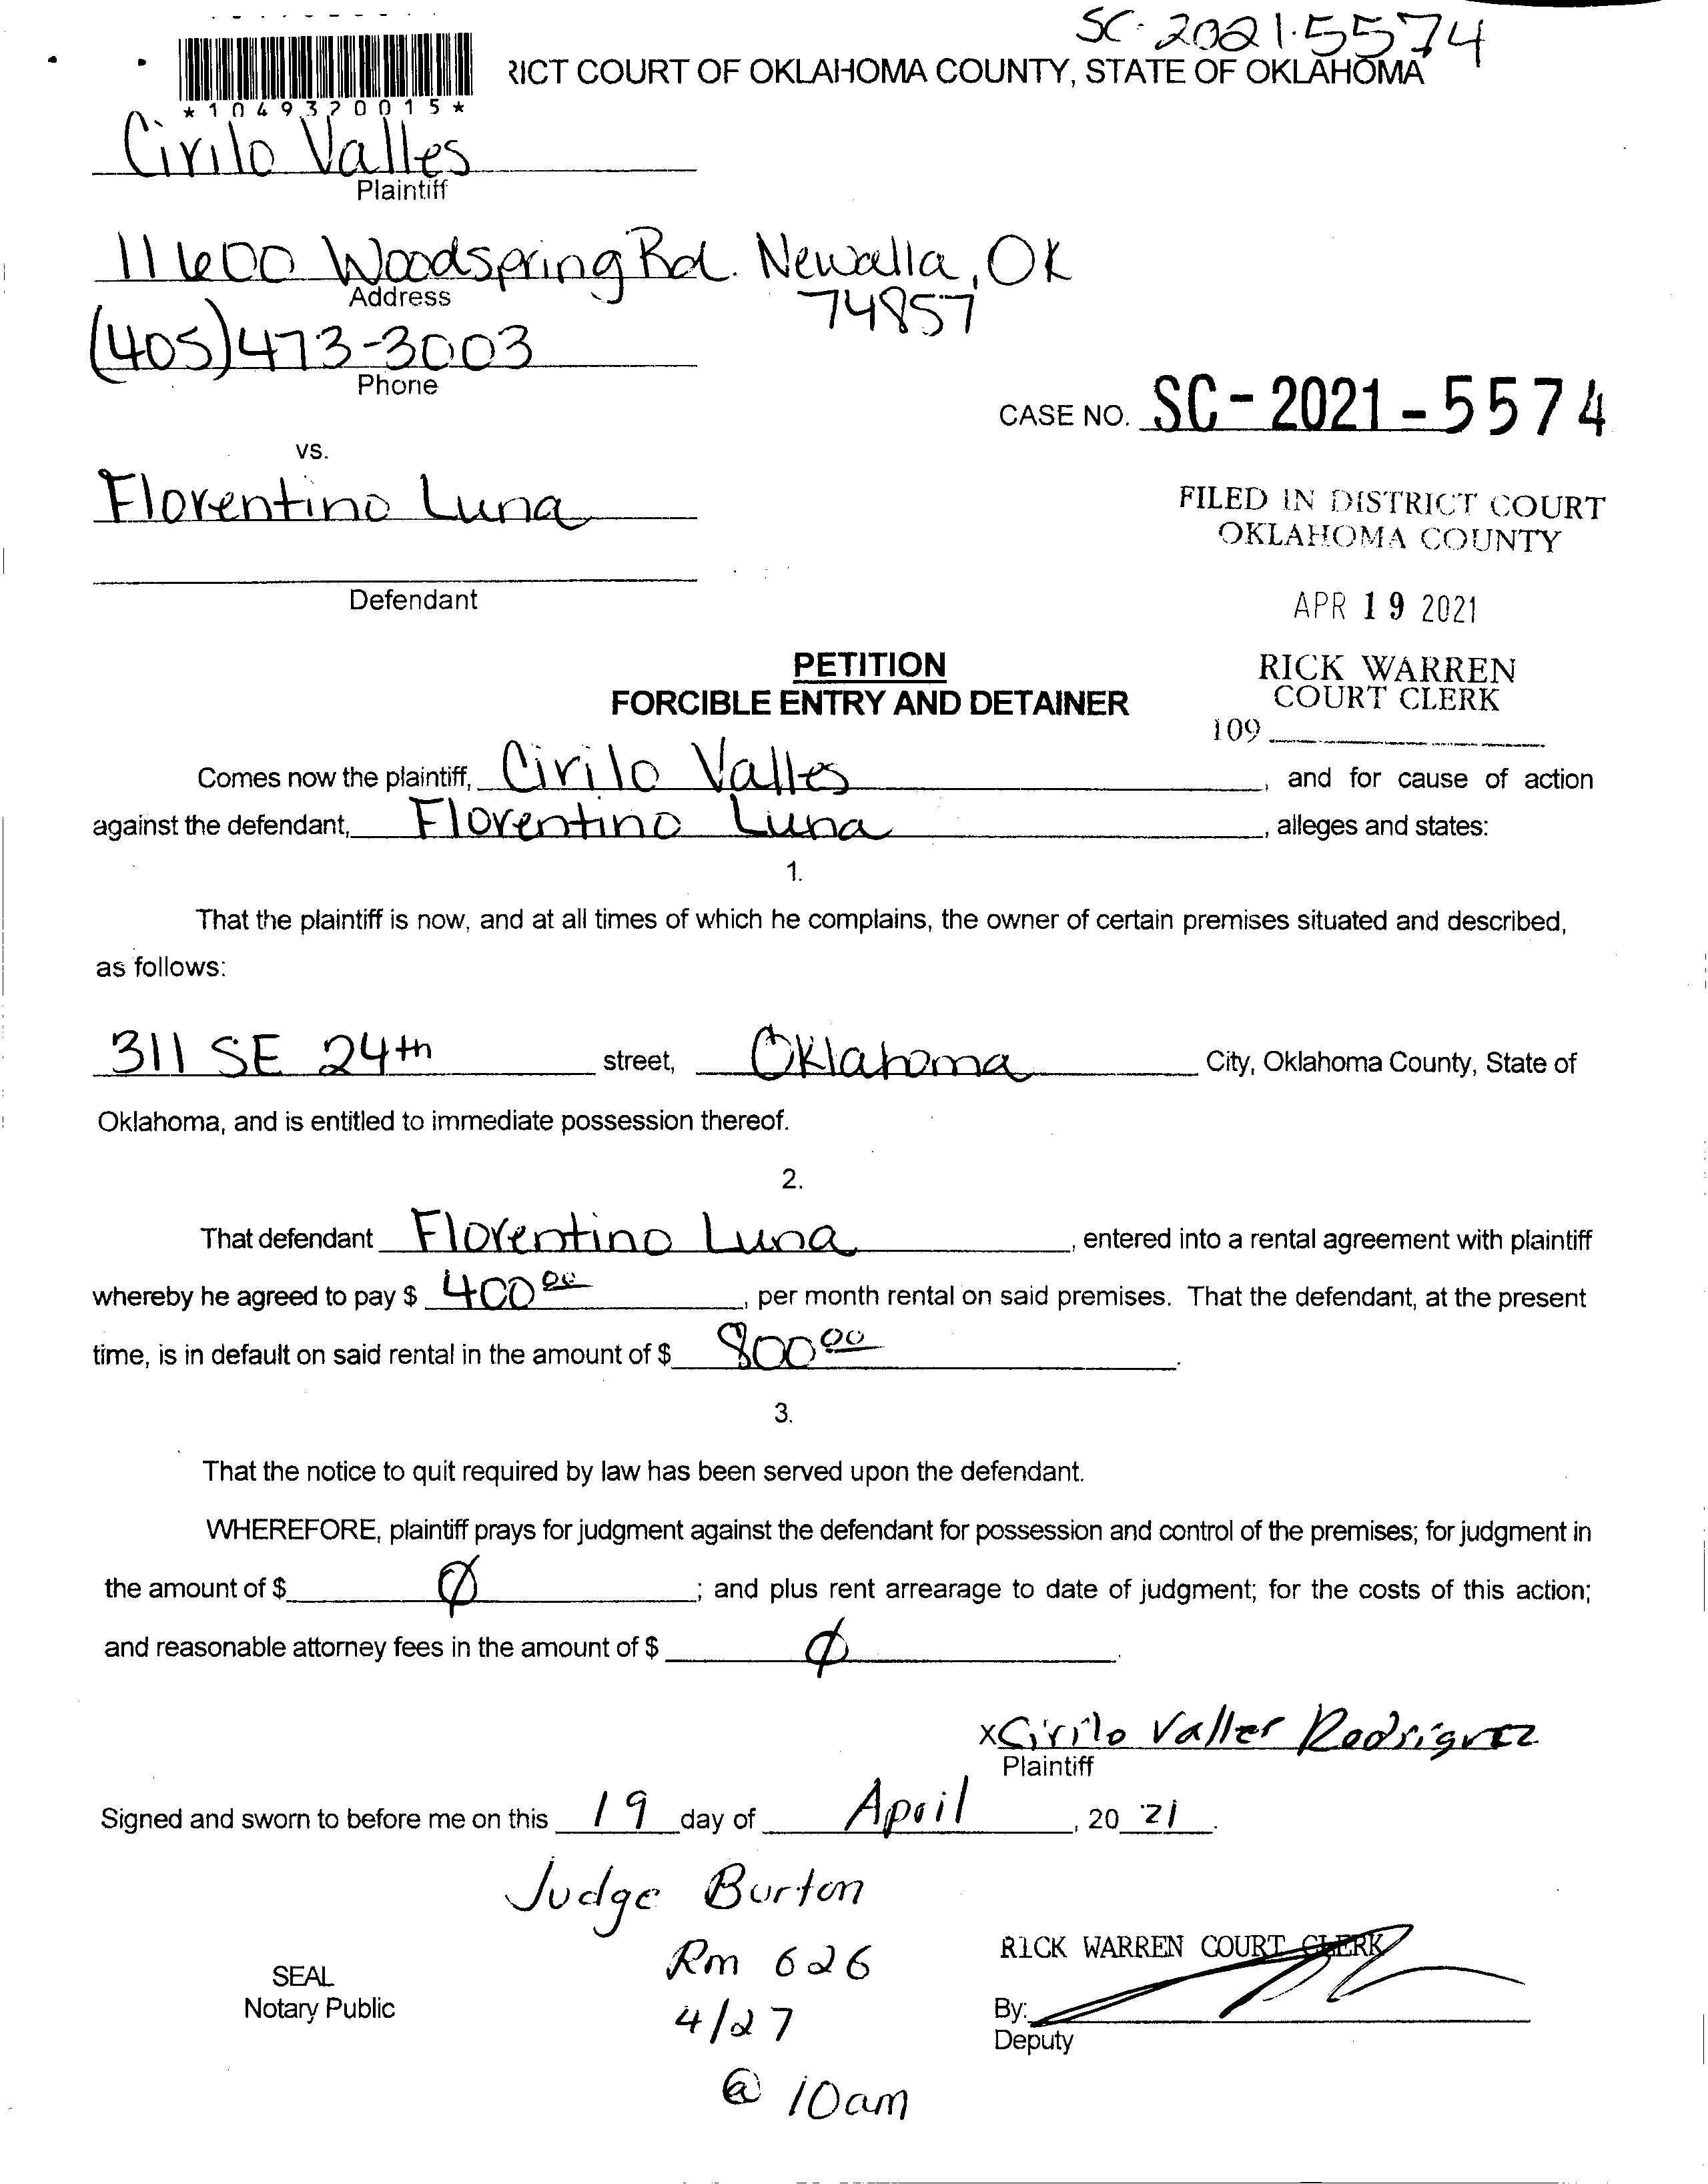 SC-2021-5574
RICT COURT OF OKLAHOMA COUNTY, STATE OF OKLAHOMA
*1049320015*
Cirilo Valles
Plaintiff
11600 Woodspring Rd. Newalla, OK
74857
Address
(405)473-3003
Phone
CASE NO. SC-2021-5574
vs.
Florentino Luna
FILED IN DISTRICT COURT
OKLAHOMA COUNTY
Defendant
APR 19 2021
PETITION
FORCIBLE ENTRY AND DETAINER
RICK WARREN
COURT CLERK
109
Comes now the plaintiff, Cirilo Valles, and for cause of action
against the defendant, Florentino Luna, alleges and states:
1.
That the plaintiff is now, and at all times of which he complains, the owner of certain premises situated and described,
as follows:
311 SE 24th street, Oklahoma City, Oklahoma County, State of
Oklahoma, and is entitled to immediate possession thereof.
2.
That defendant Florentino Luna, entered into a rental agreement with plaintiff
whereby he agreed to pay $ 400 00, per month rental on said premises. That the defendant, at the present
time, is in default on said rental in the amount of $ 800 00.
3.
That the notice to quit required by law has been served upon the defendant.
WHEREFORE, plaintiff prays for judgment against the defendant for possession and control of the premises; for judgment in
the amount of $ Ø; and plus rent arrearage to date of judgment; for the costs of this action;
and reasonable attorney fees in the amount of $ Ø.
x Cirilo Valles Rodriguez
Plaintiff
Signed and sworn to before me on this 19 day of April, 20 21.
Judge Burton
Rm 626
4/27
@ 10am
SEAL
Notary Public
RICK WARREN COURT CLERK
By:
Deputy